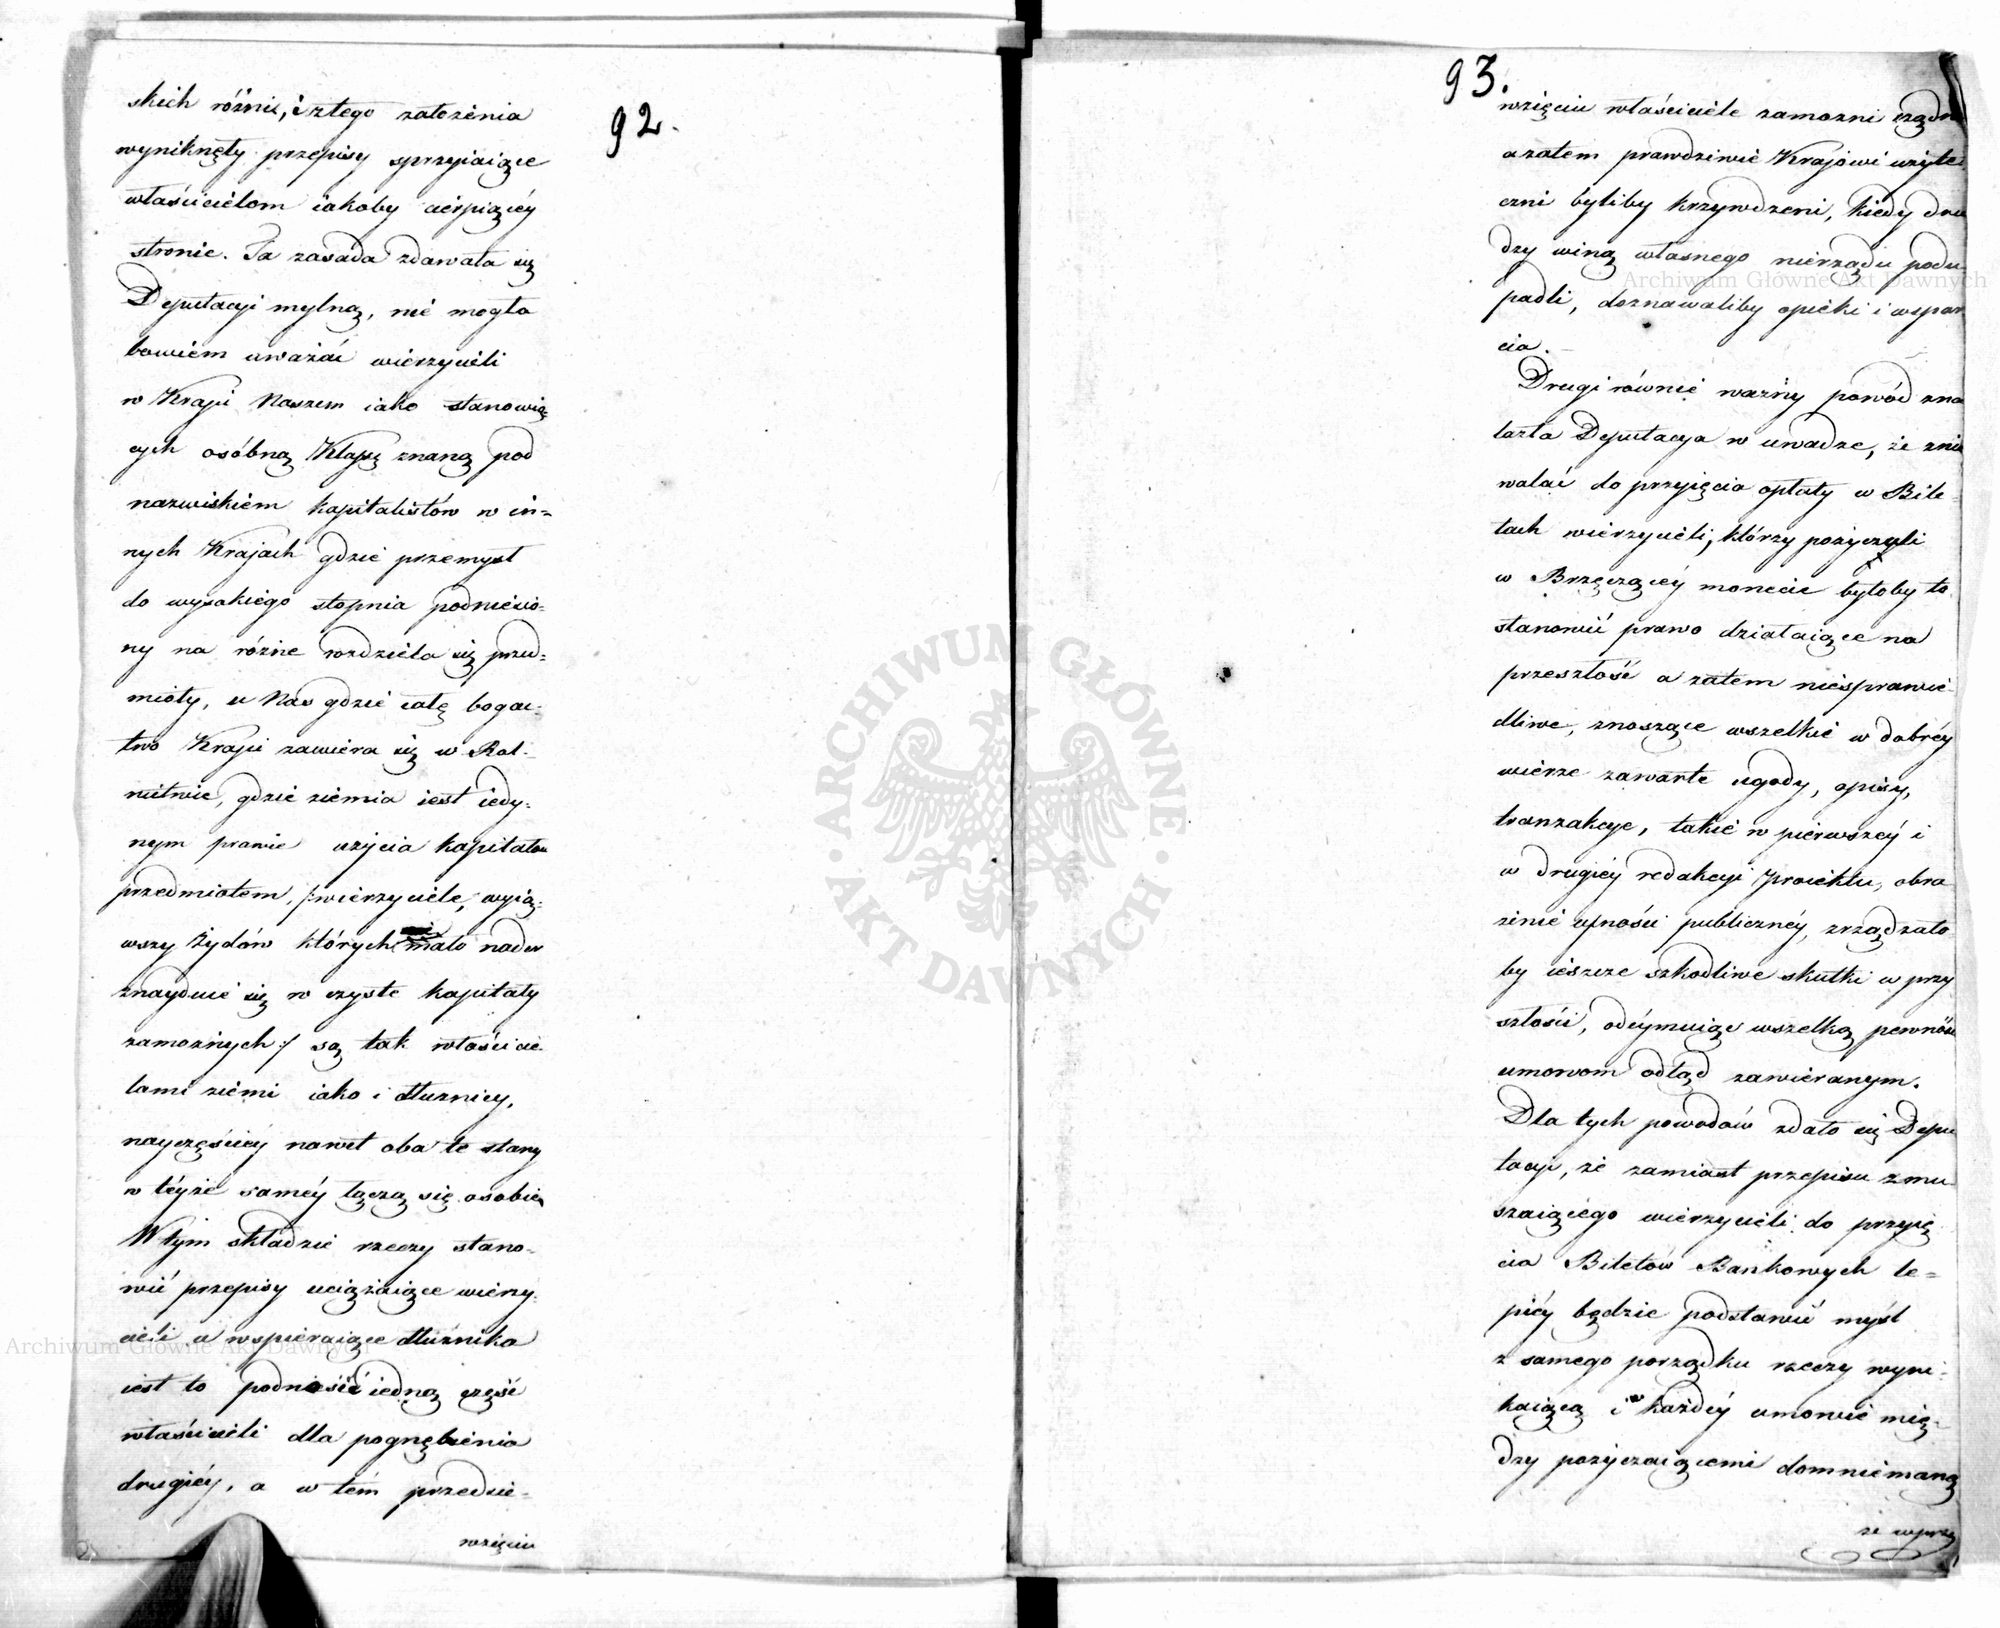 92.
skich różni, i z tego założenia
wyniknęły przepisy sprzyiaiące
właścicielom iakoby cierpiącéy
stronie. Ta zasada zdawała się
Deputacyi mylną, nie mogła
bowiem uważać wierzycieli
w Kraju Naszem iako stanowią=
cych osóbną Klassę znaną pod
nazwiskiem kapitalistów w in=
nych Krajach gdzie przemysł
do wysokiego stopnia podniesio=
ny na różne rozdziela się przed=
mioty, u Nas gdzie całe bogac=
two Kraju zawiera się w Rol=
nictwie, gdzie ziemia iest iedy=
nym prawie użycia kapitałów
przedmiotem, /:wierzyciele, wyią=
wszy Żydów których mało nader
znayduie się w czyste kapitały
zamożnych:/ są tak właścicie=
lami ziemi iako i dłużnicy,
nayczęściéy nawet oba te stany
w téyże saméy łączą się osobie.
W tym składzie rzeczy stano=
wić przepisy uciążaiące wierzy=
cieli a wspieraiące dłużnika
iest to podnosić iedną część
właścicieli dla pognębienia
drugiéy, a w tém przedsie=
wzięciu
93.
wzięciu właściciele zamożni rządni
a zatem prawdziwie Krajowi użyte
czni byliby krzywdzeni, kiedy dru
dzy winą własnego nierządu podu
padli, doznawaliby opieki i wspar
cia.
Drugi równie ważny powód zna
lazła Deputacya w uwadze, że znie
walać do przyięcia opłaty w Bile
tach wierzycieli, którzy pożyczyli
w Brzęczącéy monecie byłoby to
stanowić prawo działaiące na
przeszłość a zatem niesprawie=
dliwe, znoszące wszelkie w dobréy
wierze zawarte ugody, opisy,
tranzakcye, takie w pierwszéy i
w drugiéy redakcyi Proiektu, obra
żenie ufności publicznéy, zrządzało
by ieszcze szkodliwe skutki w przy
szłości, odéymuiąc wszelką pewność
umowom odtąd zawieranym.
Dla tych powodów zdało się Depu
tacyi, że zamiast przepisu zmu
szaiącego wierzycieli do przyię
cia Biletów Bankowych le=
piéy będzie podstawić myśl
z samego porządku rzeczy wyni=
kaiącą i w każdéy umowie mię=
dzy pożyczaiącemi domniemaną
że wprzy
Archiwum Główne Akt Dawnych
Archiwum Główne Akt Dawnych
ARCHIWUM GŁÓWNE · AKT DAWNYCH ·